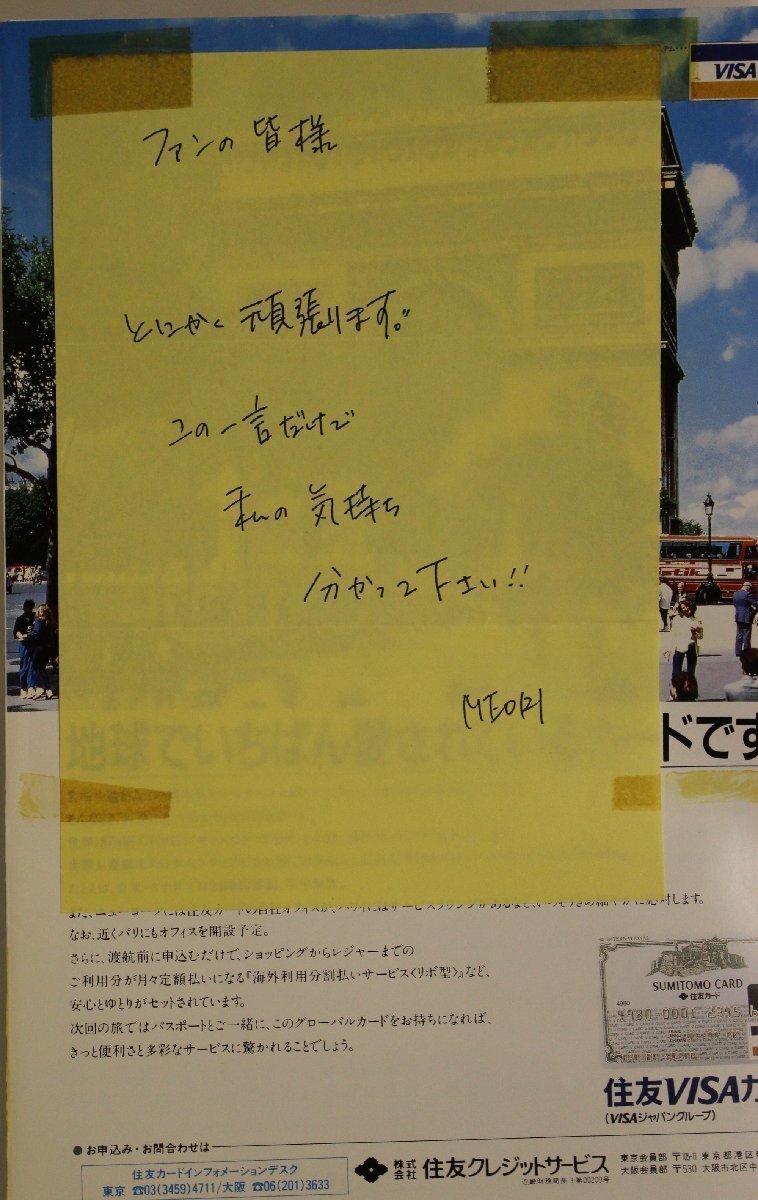 VISA
ファンの皆様
とにかく頑張ります。
この一言だけで
私の気持ち
分かって下さい!!
MEORI
stik
地球でいちばん愛
ドです
なお、近くパリにもオフィスを開設予定。
さらに、渡航前に申込むだけで、ショッピングからレジャーまでの
ご利用分が月々定額払いになる『海外利用分割払いサービス〈リボ型〉』など、
安心とゆとりがセットされています。
次回の旅ではパスポートとご一緒に、このグローバルカードをお持ちになれば、
きっと便利さと多彩なサービスに驚かれることでしょう。
SUMITOMO CARD
住友カード
住友VISAカ
(VISAジャパングループ)
●お申込み・お問合わせは
住友カードインフォメーションデスク
東京 ☎03(3459)4711/大阪 ☎06(201)3633
株式会社 住友クレジットサービス
東京会員部 〒105-11 東京都港区
大阪会員部 〒530 大阪市北区中